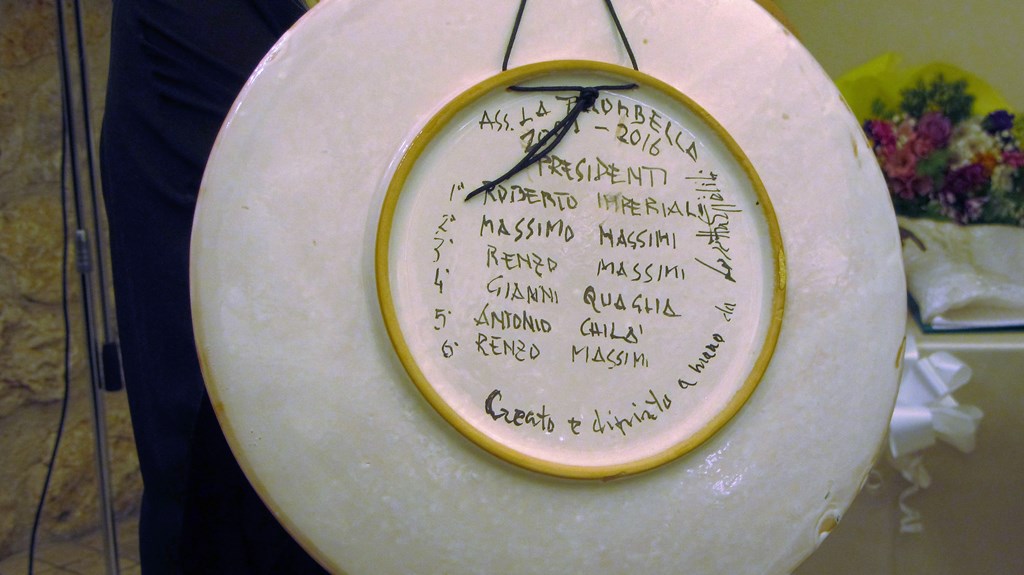 ASS. LA PALOMBELLA
- 2016
PRESIDENTI
1° ROBERTO IMPERIALI
2° MASSIMO MASSIMI
3° RENZO MASSIMI
4° GIANNI QUAGLIA
5° ANTONIO CHILA'
6° RENZO MASSIMI
Creato e dipinto a mano da